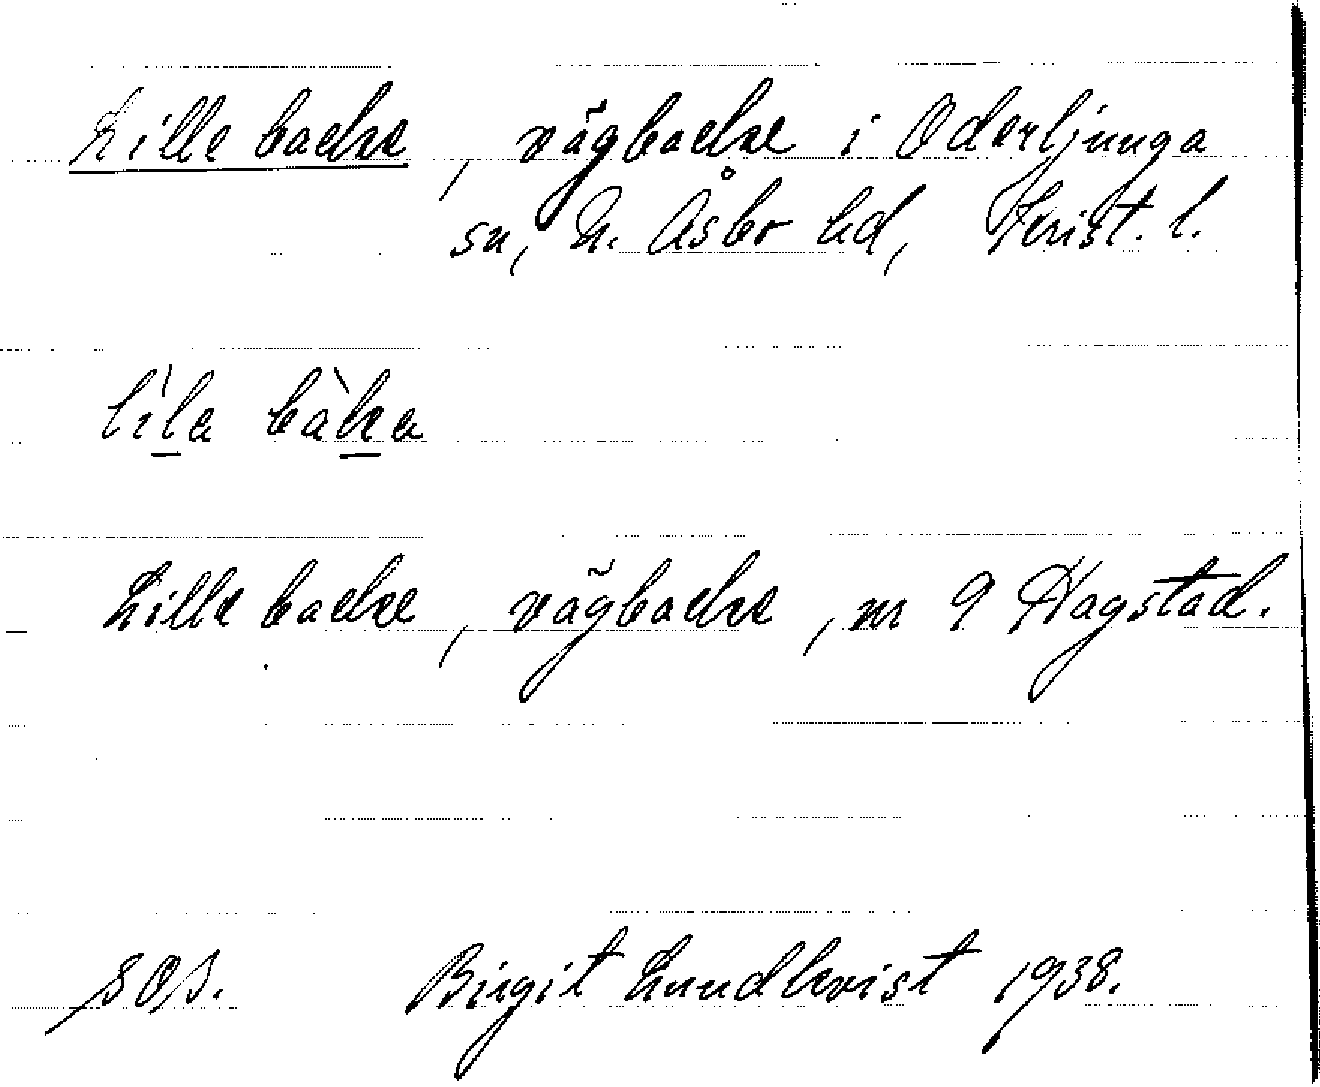 Lille backe, vägbacke i Oderljunga
sn, N. Åsbo hd, Krist. l.
lìla bàka
Lille backe, vägbacke, nr 9 Hagstad.
SOS. Birgit Lundkvist 1938.